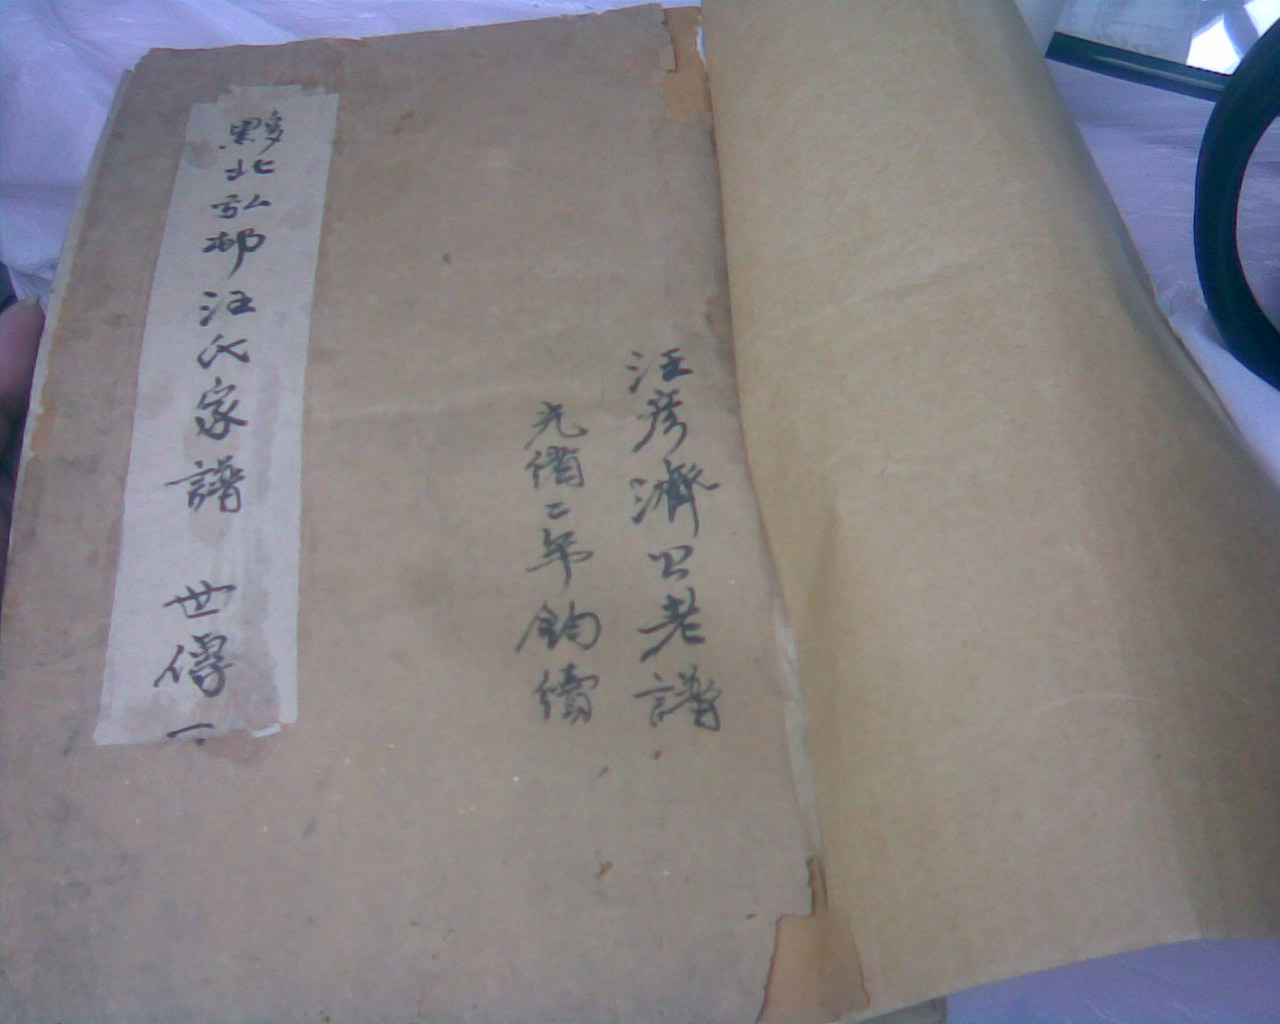 汪彥濟公老譜
光緒二年鈞續
黟北弘邨汪氏家譜 世傳